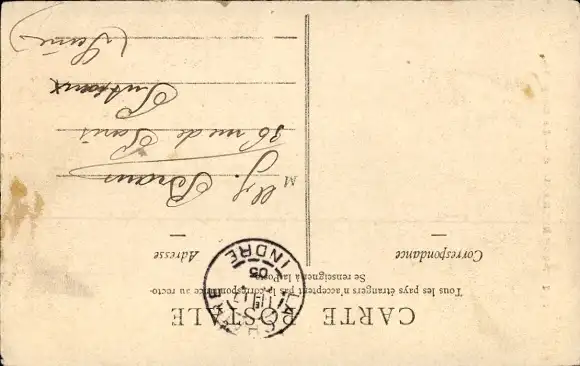 CARTE POSTALE
Tous les pays étrangers n'acceptent pas la correspondance au recto-
Se renseigner à la Poste
Correspondance
Adresse
INDRE
05
M
Braun
36 rue de Paris
Puteaux
(Seine)